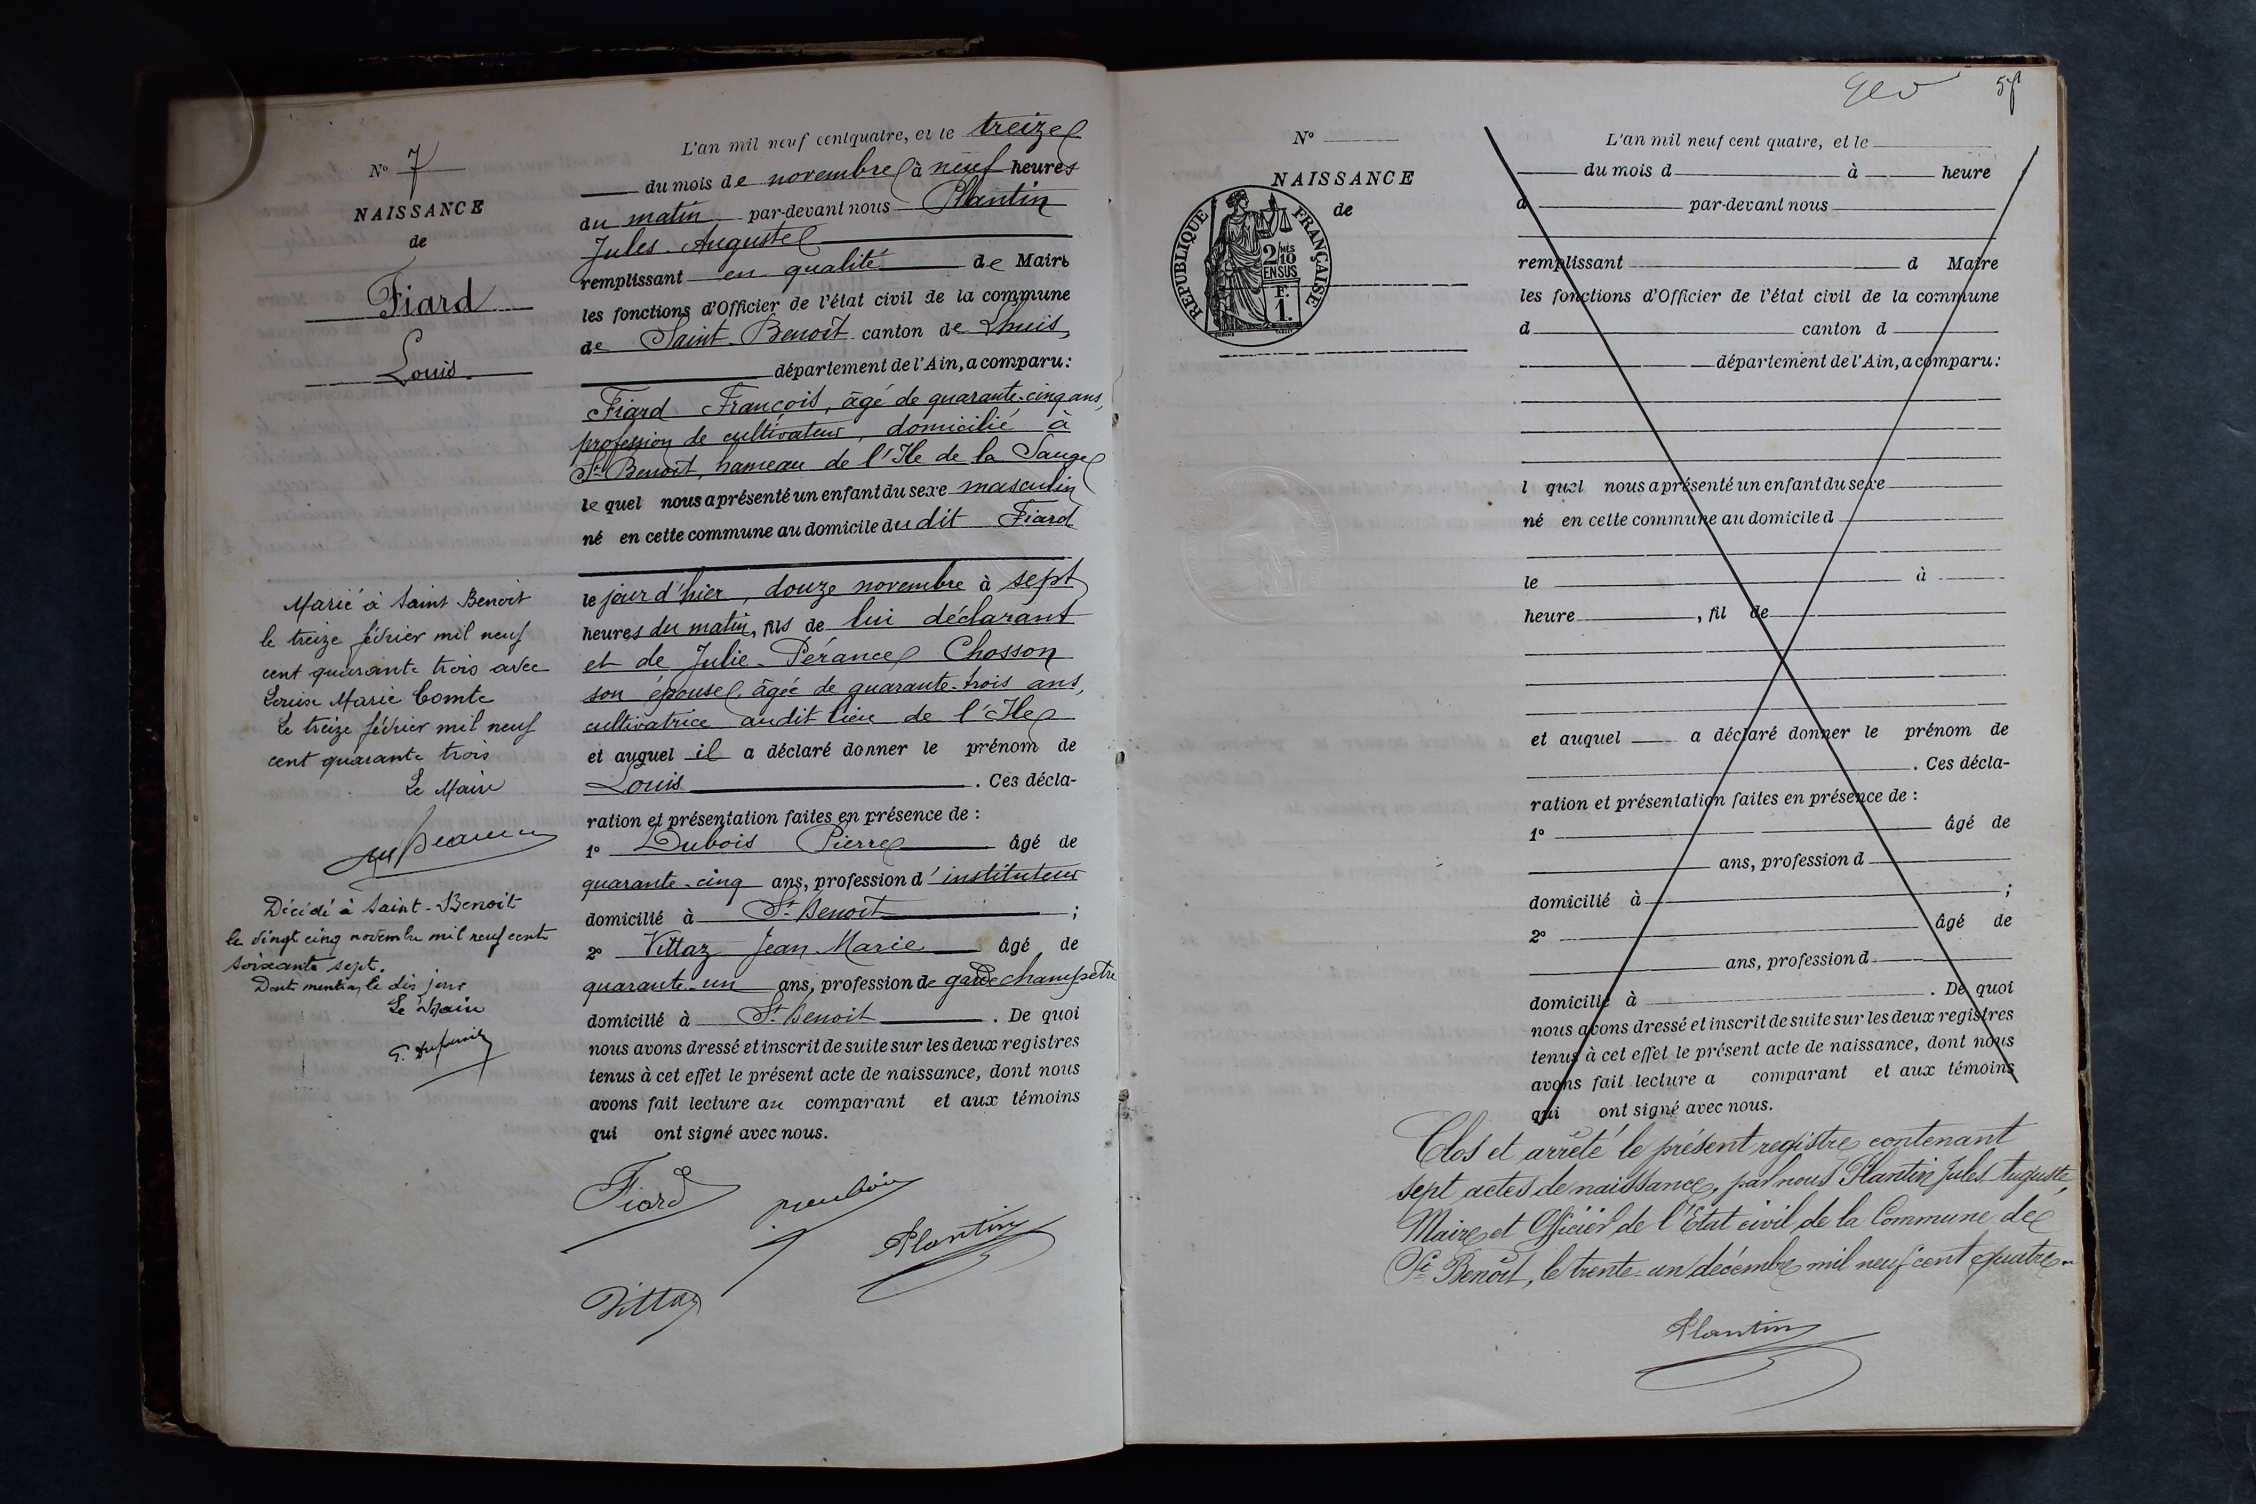 N° 7
NAISSANCE
de
Fiard
Louis.
L'an mil neuf cent quatre, et le treize
du mois de novembre à neuf heures
du matin par-devant nous Plantin
Jules Auguste
remplissant en qualité de Maire
les fonctions d'Officier de l'état civil de la commune
de Saint-Benoît canton de Lhuis,
département de l'Ain, a comparu :
Fiard François, âgé de quarante-cinq ans,
profession de cultivateur, domicilié à
St Benoit, hameau de l'Ile de la Sauge
le quel nous a présenté un enfant du sexe masculin
né en cette commune au domicile du dit Fiard
le jour d'hier, douze novembre à sept
heures du matin, fils de lui déclarant
et de Julie Pérance Chosson
son épouse, âgée de quarante-trois ans,
cultivatrice audit lieu de l'Ile
et auquel il a déclaré donner le prénom de
Louis . Ces décla-
ration et présentation faites en présence de :
1° Dubois Pierre âgé de
quarante-cinq ans, profession d'instituteur
domicilié à St Benoit ;
2° Vittaz Jean Marie âgé de
quarante-un ans, profession de garde champêtre
domicilié à St Benoit . De quoi
nous avons dressé et inscrit de suite sur les deux registres
tenus à cet effet le présent acte de naissance, dont nous
avons fait lecture au comparant et aux témoins
qui ont signé avec nous.
Fiard
Plantin
Vittaz
Marié à Saint Benoit
le treize février mil neuf
cent quarante trois avec
Louise Marie Comte
Le treize février mil neuf
cent quarante trois
Le Maire
Décédé à Saint-Benoit
le vingt cinq novembre mil neuf cent
soixante sept.
Dont mention, le dis jour
Le Maire
N°
NAISSANCE
de
REPUBLIQUE FRANÇAISE
2/10 MES
EN SUS
F.
1.
L'an mil neuf cent quatre, et le
du mois d à heure
d par-devant nous
remplissant d Maire
les fonctions d'Officier de l'état civil de la commune
d canton d
département de l'Ain, a comparu :
l quel nous a présenté un enfant du sexe
né en cette commune au domicile d
le à
heure , fil de
et auquel a déclaré donner le prénom de
. Ces décla-
ration et présentation faites en présence de :
1° âgé de
ans, profession d
domicilié à ;
2° âgé de
ans, profession d
domicilié à . De quoi
nous avons dressé et inscrit de suite sur les deux registres
tenus à cet effet le présent acte de naissance, dont nous
avons fait lecture a comparant et aux témoins
qui ont signé avec nous.
Clos et arrêté le présent registre contenant
sept actes de naissance, par nous Plantin Jules Auguste,
Maire et Officier de l'Etat civil de la Commune de
St Benoît, le trente-un décembre mil neuf cent quatre.
Plantin